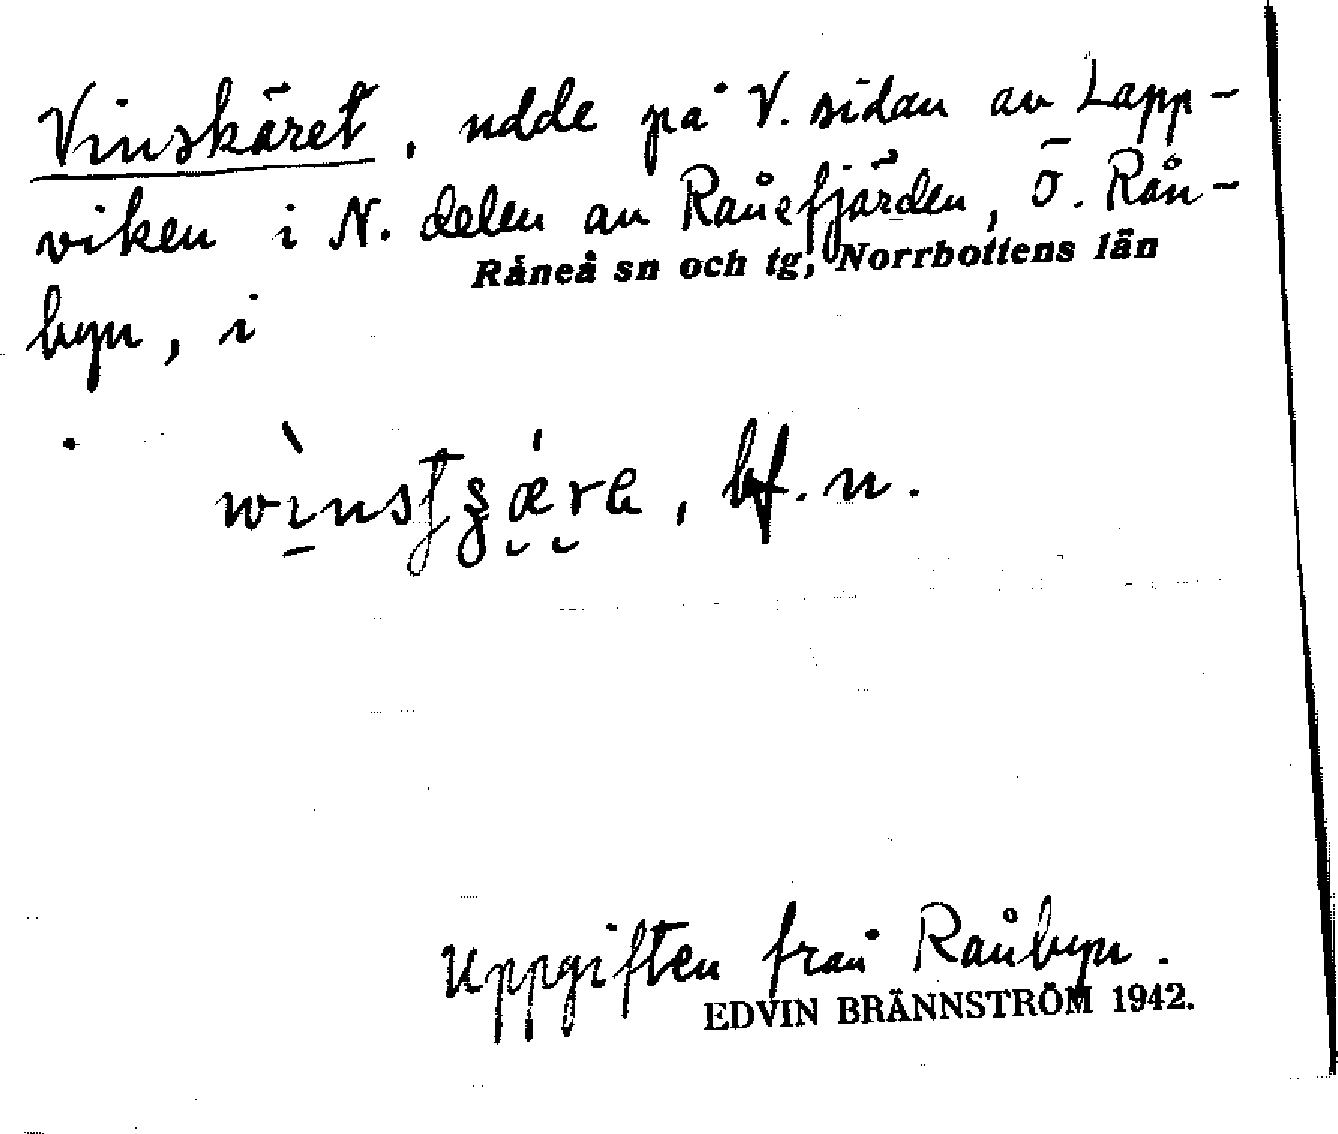 Vinskäret, udde på V. sidan av Lapp-
viken i N. delen av Rånefjärden, Ö. Rån-
Råneå sn och tg, Norrbottens län
byn, i
, bf. n.
Uppgiften från Rånbyn.
EDVIN BRÄNNSTRÖM 1942.